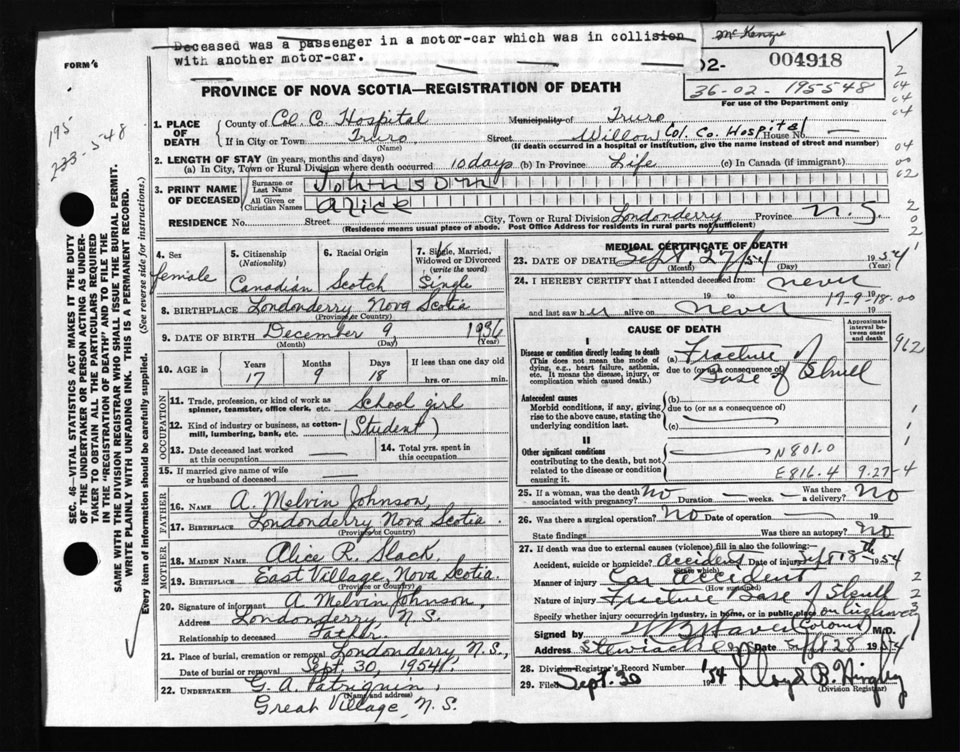 Deceased was a passenger in a motor-car which was in collision
with another motor-car.
McKenzie
FORM 6
02- 004918
36-02-195548
For use of the Department only
PROVINCE OF NOVA SCOTIA—REGISTRATION OF DEATH
195
233-5-48
SEC. 46—VITAL STATISTICS ACT MAKES IT THE DUTY
OF THE UNDERTAKER OR PERSON ACTING AS UNDER-
TAKER TO OBTAIN ALL THE PARTICULARS REQUIRED
IN THE "REGISTRATION OF DEATH" AND TO FILE THE
SAME WITH THE DIVISION REGISTRAR WHO SHALL ISSUE THE BURIAL PERMIT.
WRITE PLAINLY WITH UNFADING INK. THIS IS A PERMANENT RECORD.
Every item of information should be carefully supplied. (See reverse side for instructions.)
1. PLACE OF DEATH
County of Col. Co. Hospital Municipality of Truro
If in City or Town Truro Street Willow Col. Co. Hospital House No.
(Name) (If death occurred in a hospital or institution, give the name instead of street and number)
2. LENGTH OF STAY (in years, months and days)
(a) In City, Town or Rural Division where death occurred 10 days (b) In Province Life (c) In Canada (if immigrant)
3. PRINT NAME OF DECEASED
Surname or Last Name Johnson
All Given or Christian Names Alice
RESIDENCE No. Street City, Town or Rural Division Londonderry Province N.S.
(Residence means usual place of abode. Post Office Address for residents in rural parts not sufficient)
4. Sex female
5. Citizenship (Nationality) Canadian
6. Racial Origin Scotch
7. Single, Married, Widowed or Divorced (write the word) Single
8. BIRTHPLACE Londonderry Nova Scotia
(Province or Country)
9. DATE OF BIRTH December 9, 1936
(Month) (Day) (Year)
10. AGE in Years 17 Months 9 Days 18 If less than one day old hrs. or min.
OCCUPATION
11. Trade, profession, or kind of work as spinner, teamster, office clerk, etc. School girl
12. Kind of industry or business, as cotton-mill, lumbering, bank, etc. (Student)
13. Date deceased last worked at this occupation
14. Total yrs. spent in this occupation
15. If married give name of wife or husband of deceased
FATHER
16. NAME A. Melvin Johnson,
17. BIRTHPLACE Londonderry Nova Scotia.
(Province or Country)
MOTHER
18. MAIDEN NAME Alice R. Slack,
19. BIRTHPLACE East Village, Nova Scotia.
(Province or Country)
20. Signature of informant A. Melvin Johnson,
Address Londonderry, N.S.
Relationship to deceased Father.
21. Place of burial, cremation or removal Londonderry N.S.,
Date of burial or removal Sept. 30, 1954.
22. UNDERTAKER G. A. Patriquin,
(Name and address)
Great Village, N.S.
MEDICAL CERTIFICATE OF DEATH
23. DATE OF DEATH Sept. 27/54 1954
(Month) (Day) (Year)
24. I HEREBY CERTIFY that I attended deceased from: never
19 to 17-9-18-00
and last saw her alive on never 19
CAUSE OF DEATH
Approximate interval between onset and death
I
Disease or condition directly leading to death
(This does not mean the mode of dying, e.g., heart failure, asthenia, etc. It means the disease, injury, or complication which caused death.)
(a) Fracture of
due to (or as consequence of) Base of Skull
962
Antecedent causes
Morbid conditions, if any, giving rise to the above cause, stating the underlying condition last.
(b)
due to (or as a consequence of)
(c)
II
Other significant conditions
contributing to the death, but not related to the disease or condition causing it.
N801.0
E816.4 9-27-4
25. If a woman, was the death associated with pregnancy? No Duration weeks. Was there a delivery? No
26. Was there a surgical operation? No Date of operation 19
State findings Was there an autopsy? No
27. If death was due to external causes (violence) fill in also the following:—
Accident, suicide or homicide? Accident Date of injury Sept 18th 1954
(State which)
Manner of injury Car accident
(How sustained)
Nature of injury Fracture Base of Skull
Specify whether injury occurred in industry, in home, or in public place on highway
Signed by (Coroner) M.D.
Address Stewiacke Date Sept 28 1954
28. Division Registrar's Record Number
29. Filed Sept. 30 1954 Lloyd B. Hingley
(Division Registrar)